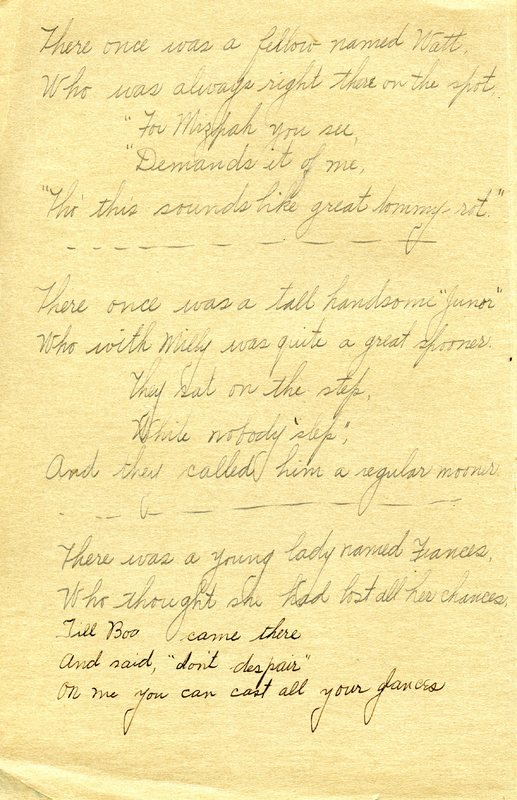 There once was a fellow named Watt,
Who was always right there on the spot.
"For Mizpah you see,
"Demands it of me,
"Tho' this sounds like great tommy-rot."
There once was a tall handsome "Junor"
Who with Milly was quite a great spooner.
They sat on the step,
While nobody "slep",
And they called him a regular mooner.
There was a young lady named Frances,
Who thought she had lost all her chances,
Till Boo came there
And said, "don't despair"
On me you can cast all your glances